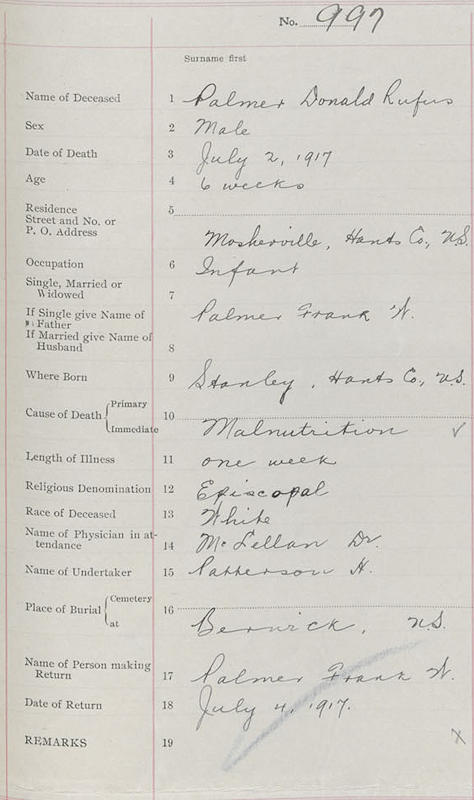 No. 997
Surname first
Name of Deceased 1 Palmer Donald Rufus
Sex 2 Male
Date of Death 3 July 2, 1917
Age 4 6 weeks
Residence 5
Street and No. or
P. O. Address
Mosherville, Hants Co., N.S.
Occupation 6 Infant
Single, Married or
Widowed 7
If Single give Name of Palmer Frank W.
Father
If Married give Name of
Husband 8
Where Born 9 Stanley, Hants Co., N.S.
Cause of Death { Primary 10
Immediate Malnutrition ✓
Length of Illness 11 one week
Religious Denomination 12 Episcopal
Race of Deceased 13 White
Name of Physician in at-
tendance 14 McLellan Dr.
Name of Undertaker 15 Patterson H.
Place of Burial { Cemetery 16
at Berwick, N.S.
Name of Person making
Return 17 Palmer Frank W.
Date of Return 18 July 4, 1917.
REMARKS 19 x